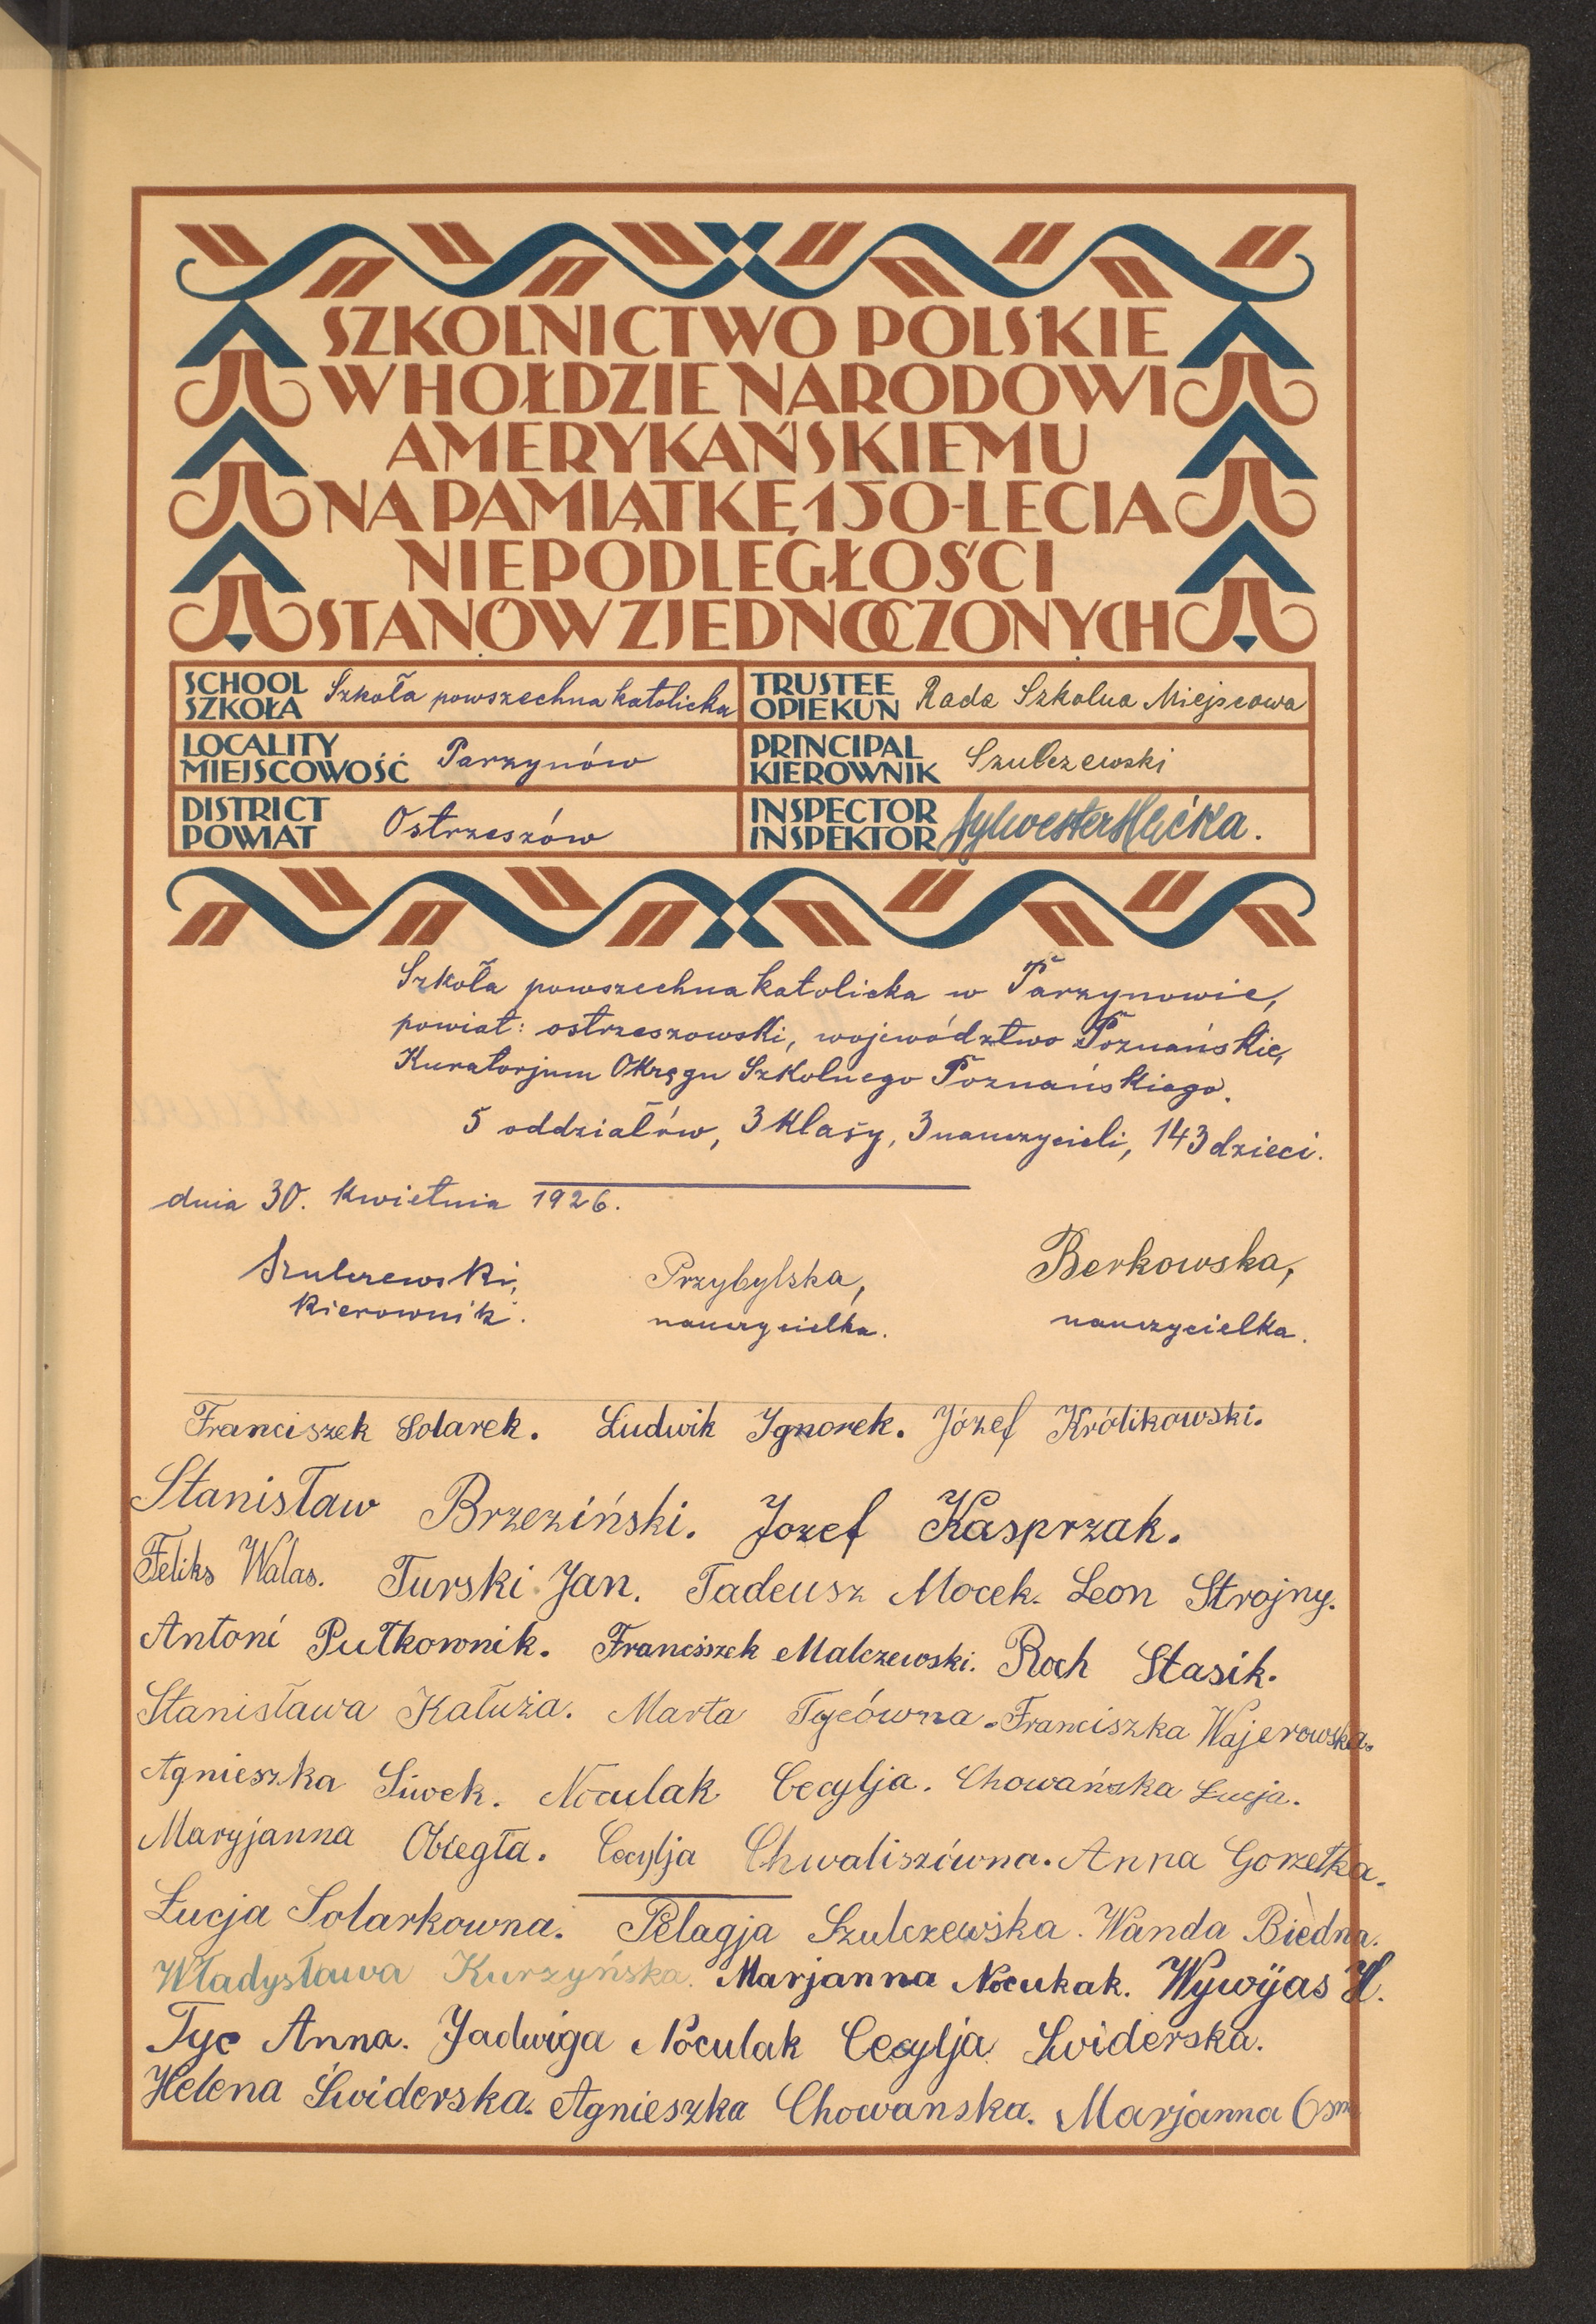 SZKOLNICTWO POLSKIE
W HOŁDZIE NARODOWI
AMERYKAŃSKIEMU
NA PAMIĄTKĘ 150-LECIA
NIEPODLEGŁOŚCI
STANÓW ZJEDNOCZONYCH
SCHOOL
SZKOŁA Szkoła powszechna katolicka
TRUSTEE
OPIEKUN Rada Szkolna Miejscowa
LOCALITY
MIEJSCOWOŚĆ Parzynów
PRINCIPAL
KIEROWNIK Szulczewski
DISTRICT
POWIAT Ostrzeszów
INSPECTOR
INSPEKTOR Sylwester
Szkoła powszechna katolicka w Parzynowie,
powiat: ostrzeszowski, województwo Poznańskie,
Kuratorjum Okręgu Szkolnego Poznańskiego.
5 oddziałów, 3 klasy, 3 nauczycieli, 143 dzieci.
dnia 30. kwietnia 1926.
Szulczewski, Przybylska, Berkowska,
kierownik. nauczycielka. nauczycielka.
Franciszek Solarek. Ludwik Ignorek. Józef Królikowski.
Stanisław Brzeziński. Jozef Kasprzak.
Feliks Walas. Turski Jan. Tadeusz Mocek. Leon Strojny.
Antoni Pułkownik. Franciszek Malczewski. Roch Stasik.
Stanisława Kałuża. Marta Tycówna. Franciszka Wajerowska.
Agnieszka Siwek. Noculak Cecylja. Chowańska Łucja.
Maryjanna Obiegła. Cecylja Chwaliszówna. Anna Gorzełka.
Łucja Solarkowna. Pelagja Szulczewska. Wanda Biedna.
Władysława Kurzyńska. Marjanna Nocukak. Wywijas H.
Tyc Anna. Jadwiga Noculak Cecylja Swiderska.
Helena Świderska. Agnieszka Chowanska. Marjanna